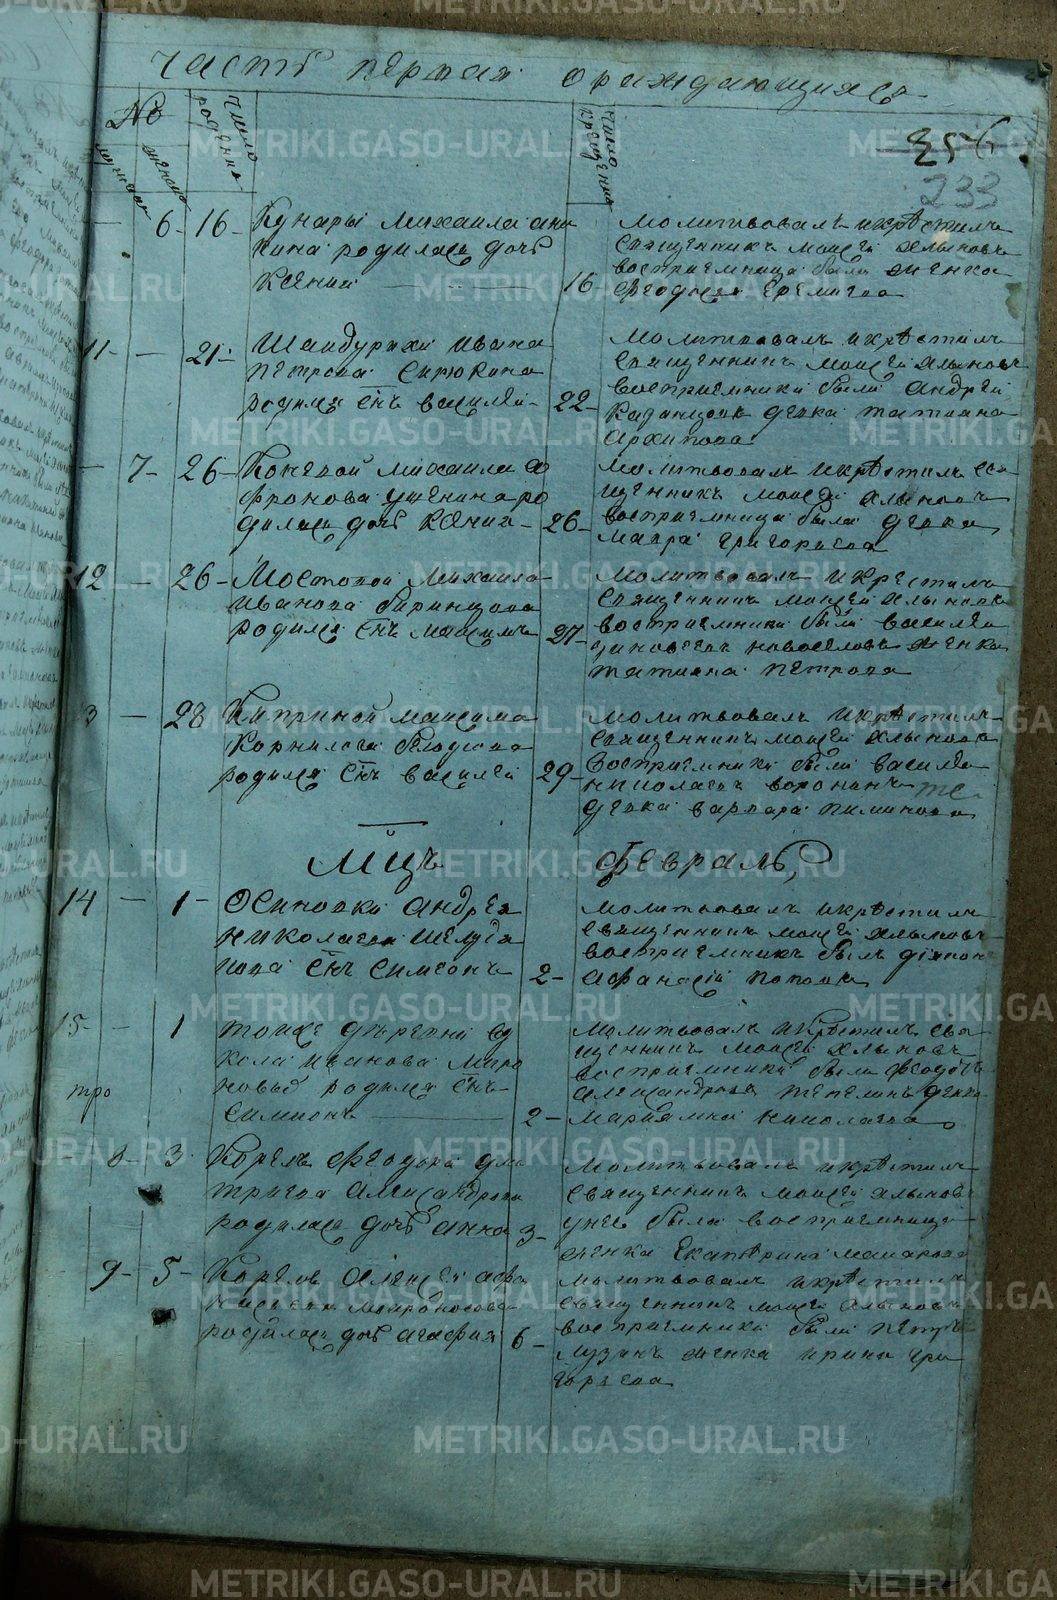 часть первая ораждающихсь
№
мужска
женска
число
рождения
число
крещения
256
233
6 16 Кунары Михаила Ани
кина родилась дочь
Ксения 16
молитвовалъ икрѣстилъ
священникъ Моисей Хлыновъ
восприемница была женка
Феодосья Еремиева
11 — 21 Шандурихи Ивана
Петрова Сирюкина
родился сꙵнъ василей 22
молитвовалъ икрѣстилъ
священникъ Моисей Хлыновъ
восприемники были Андрей
Казанцовъ девка татиана
Архипова
— 7 26 Коневой Михаила Со
фронова ушенина ро
дилась дочь Ксения 26
молитвовалъ икрѣстилъ свя
щенникъ Моисей Хлыновъ
восприемница была девка
Мавра григорьева
12 — 26 Мостовой Михаила
Иванова
родился сꙵнъ Максимъ 27
молитвовалъ икрестилъ
священникъ Моисей Хлыновъ
восприемники были василей
зиновьевъ новоселовъ женка
татиана Петрова
3 — 28 Киприной максима
Корнилова
родился сꙵнъ василей 29
молитвовалъ икрѣстилъ
священникъ Моисей Хлыновъ
восприемники были василей
николаевъ воронинъ
девка варвара пиминова
Мцъ Февраль,
14 — 1 Осиновки Андрея
николаева
сꙵнъ Симеонъ 2
молитвовалъ икрѣстилъ
священникъ Моисей Хлыновъ
восприемникъ былъ діяконъ
Афанасій Поповъ
15 — 1 тоиже деревни
Иванова Миро
новыхъ родился сꙵнъ
Симионъ 2
тро
молитвовалъ икрѣстилъ свя
щенникъ Моисей Хлыновъ
восприемники были Феодотъ
александровъ тепелинъ девка
Мариямна николаева
8 3 Корелъ Феодора ди
триева Александрова
родилась дочь Анна 3
молитвовалъ икрѣстилъ
священникъ Моисей Хлыновъ
унеѣ была восприемница
женка Екатѣрина макарова
9 5 Корелов Алексѣй афа
насьева мироносова
родилась дочь агафия 6
молитвовалъ икрѣстилъ
священникъ Моисей Хлыновъ
восприемники были Петръ
Лузинъ женка ирина гри
горьева
METRIKI.GASO-URAL.RU